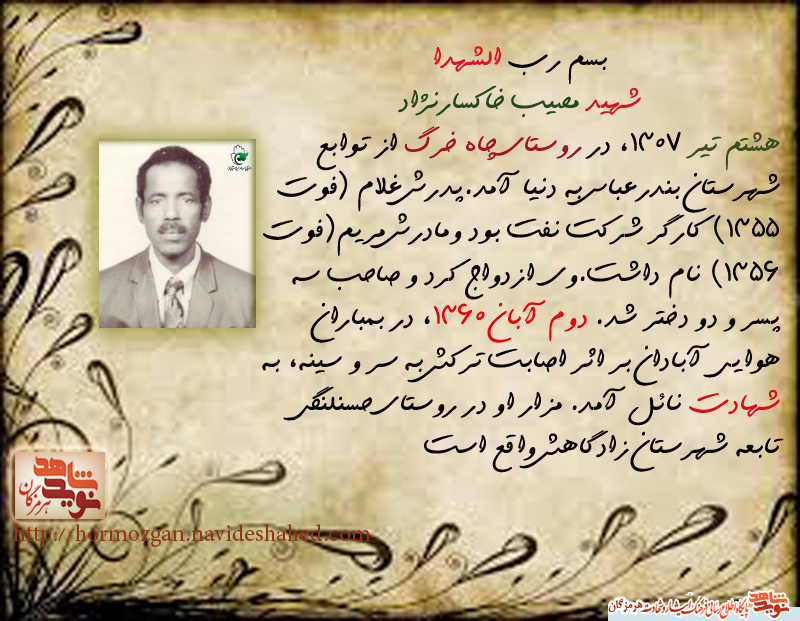 بسم رب الشهدا
شهید مصیب خاکسارنژاد
هشتم تیر ۱۳۰۷، در روستای چاه خرگ از توابع
شهرستان بندرعباس به دنیا آمد. پدرش غلام (فوت
۱۳۵۵) کارگر شرکت نفت بود و مادرش مریم (فوت
۱۳۵۶) نام داشت. وی ازدواج کرد و صاحب سه
پسر و دو دختر شد. دوم آبان ۱۳۶۰، در بمباران
هوایی آبادان بر اثر اصابت ترکش به سر و سینه، به
شهادت نائل آمد. مزار او در روستای حسنلنگی
تابعه شهرستان زادگاهش واقع است
نوید شاهد
هرمزگان
http://hormozgan.navideshahed.com
نوید شاهد پایگاه اطلاع رسانی فرهنگ ایثار و شهادت هرمزگان